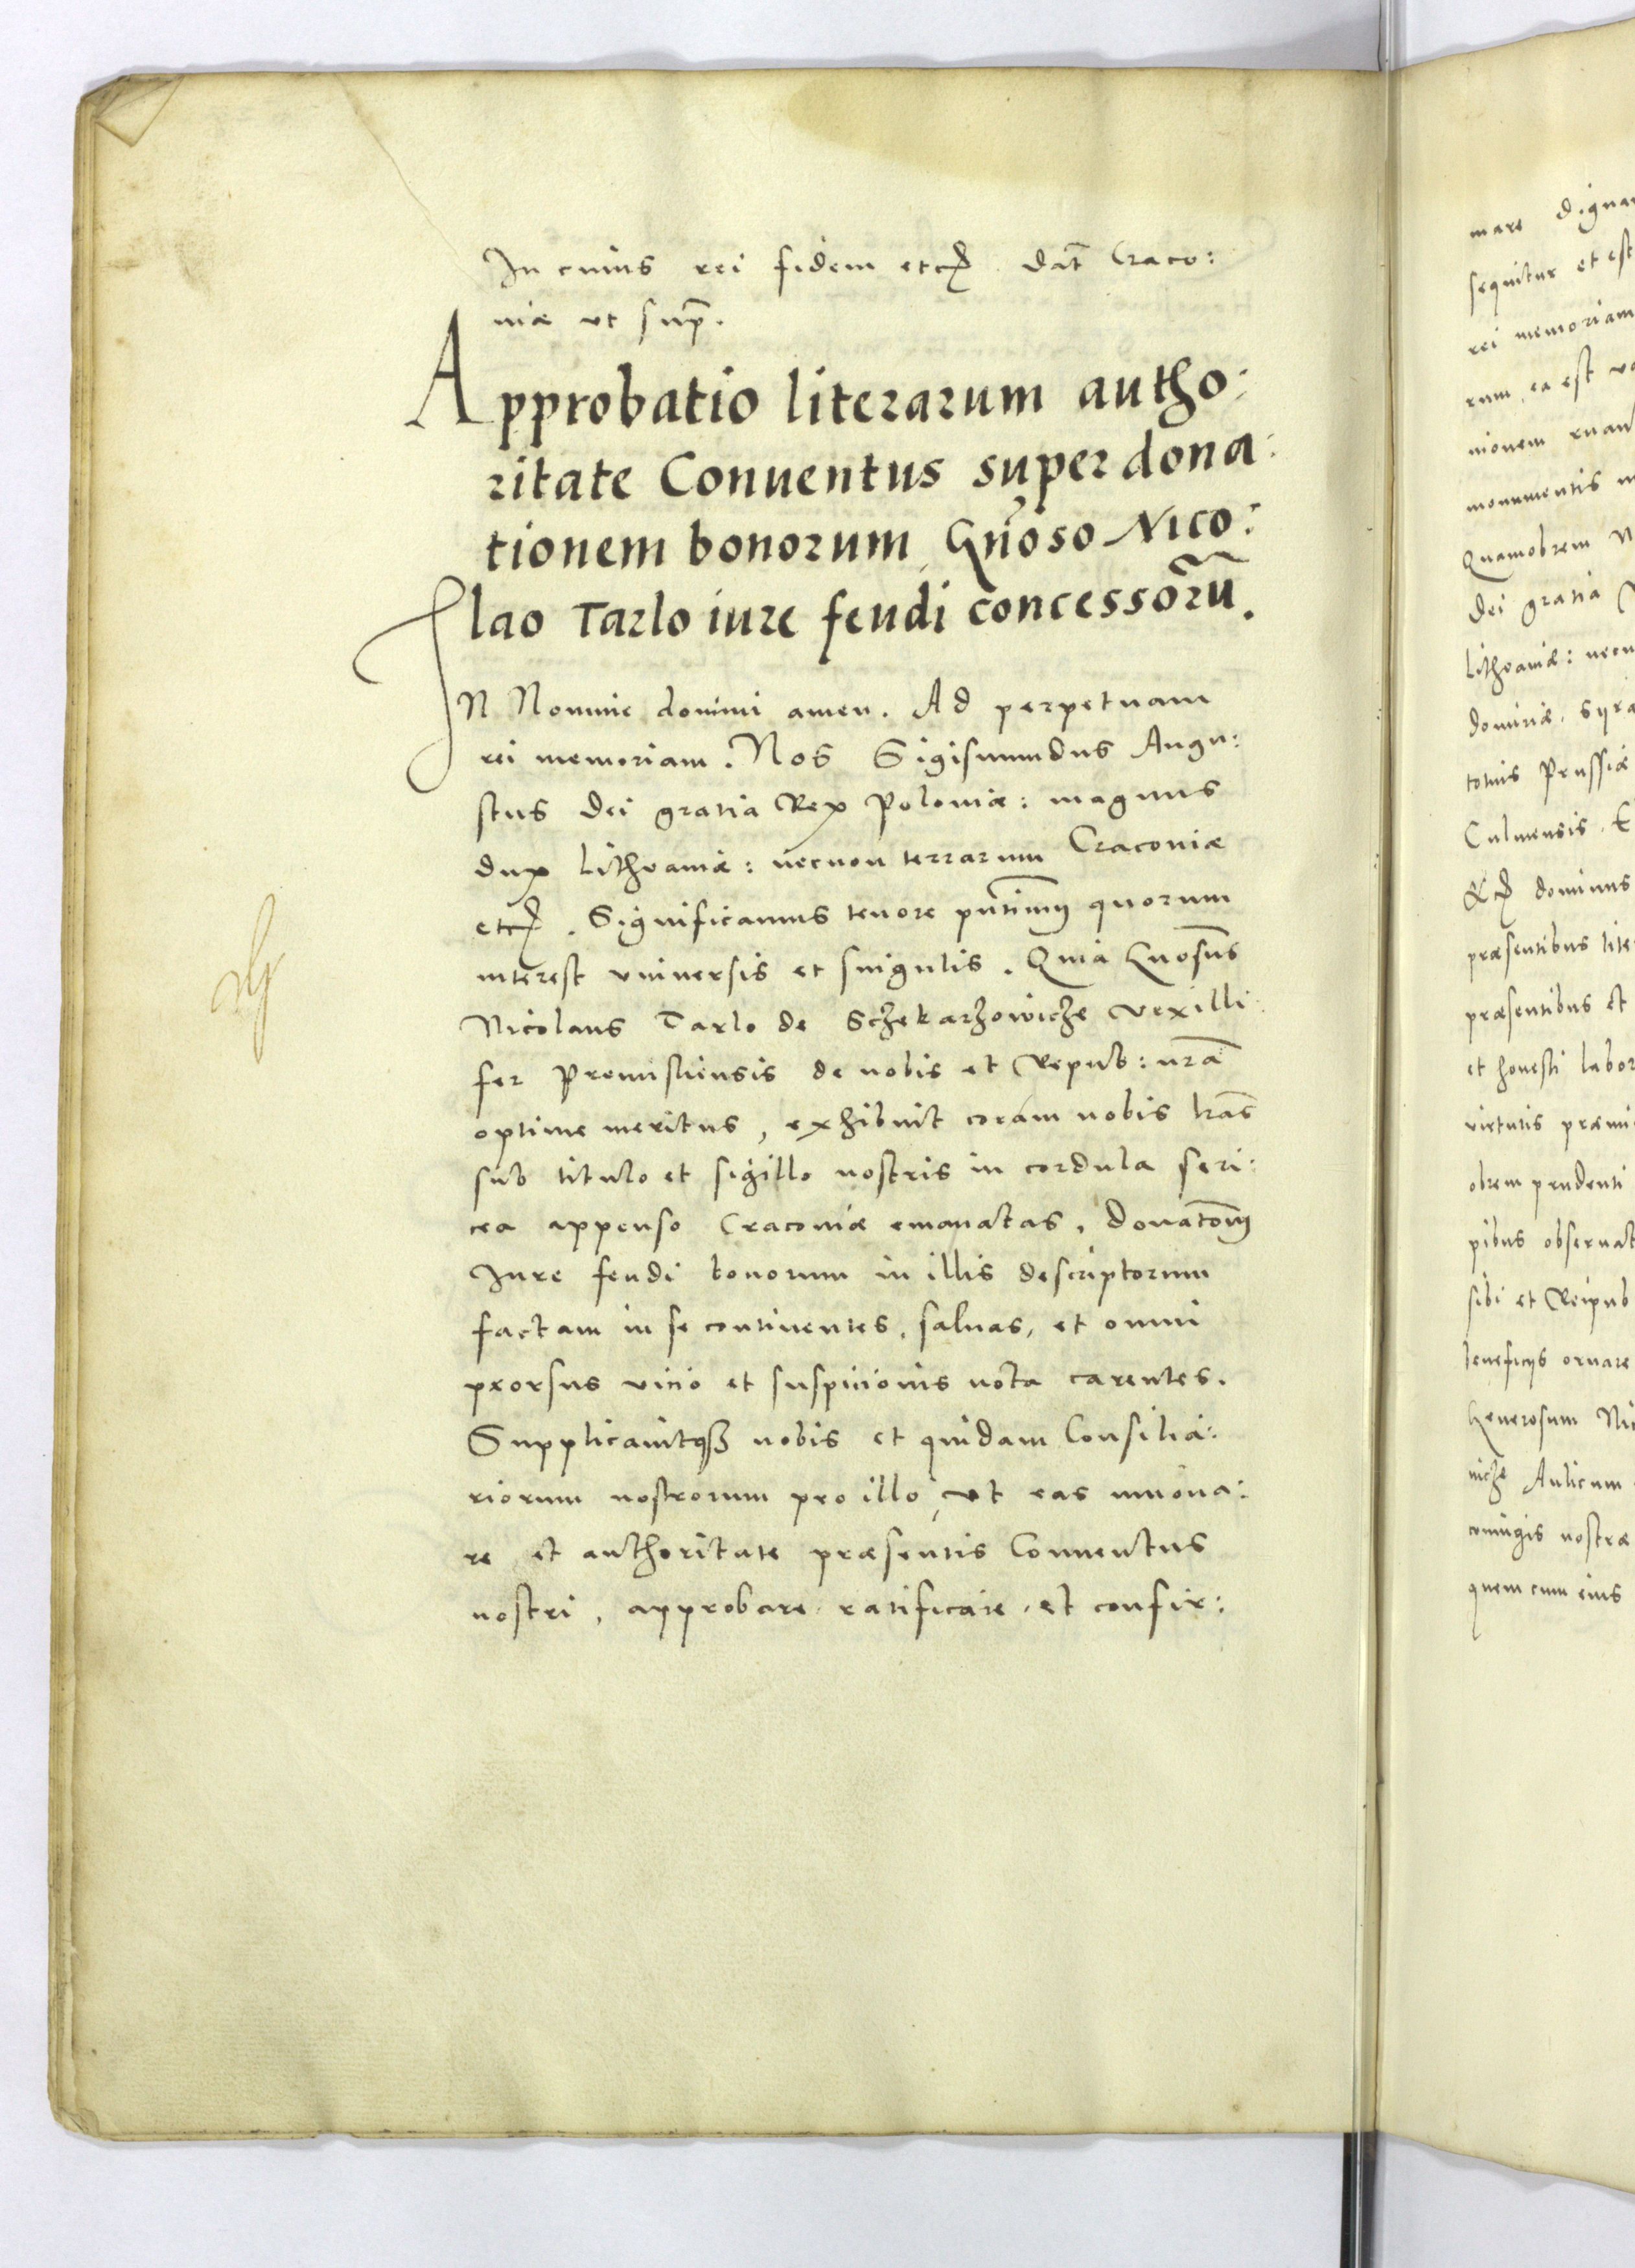 In cuius rei fidem etc. Dat̄ Craco:
niæ ut sup̄.
Approbatio literarum autho:
ritate Conuentus super dona:
tionem bonorum Gn̄oso Nico:
lao Tarlo iure feudi concessorū.
IN Nomine domini amen. Ad perpetuam
rei memoriam. Nos Sigismundus Augu:
stus Dei gratia Rex Poloniæ: magnus
dux Lithvaniæ: necnon terrarum Cracoviæ
etc. Significamus tenore pn̄tium quorum
interest universis et singulis. Quia Gn̄osus
Nicolaus Tarlo de Sczekarzowicze vexilli:
fer Premisliensis de nobis et Repub: nr̄a
optime meritus, exhibuit coram nobis lr̄as
sub titulo et sigillo nostris in cordula seri:
cea appenso Cracoviæ emanatas, donatōnem
Iure feudi bonorum in illis descriptorum
factam in se continentes, salvas, et omni
prorsus vicio et suspicionis nota carentes.
Supplicavitq₃ nobis et quidam Consilia:
riorum nostrorum pro illo, ut eas innova:
re et authoritate præsentis Conventus
nostri, approbare, ratificare, et confir:
mare
sequitur et est
rei memoriam
rum, ea est
monumentis
Quamobrem
Dei gratia
Lithvaniæ:
totius Prussiæ
Culmensis.
dominus
præsentibus
præsentibus et
et honesti
virtutis
sibi et Reipub
beneficiis ornare
Generosum
Aulicum
coniugis nostræ
quem cum eius